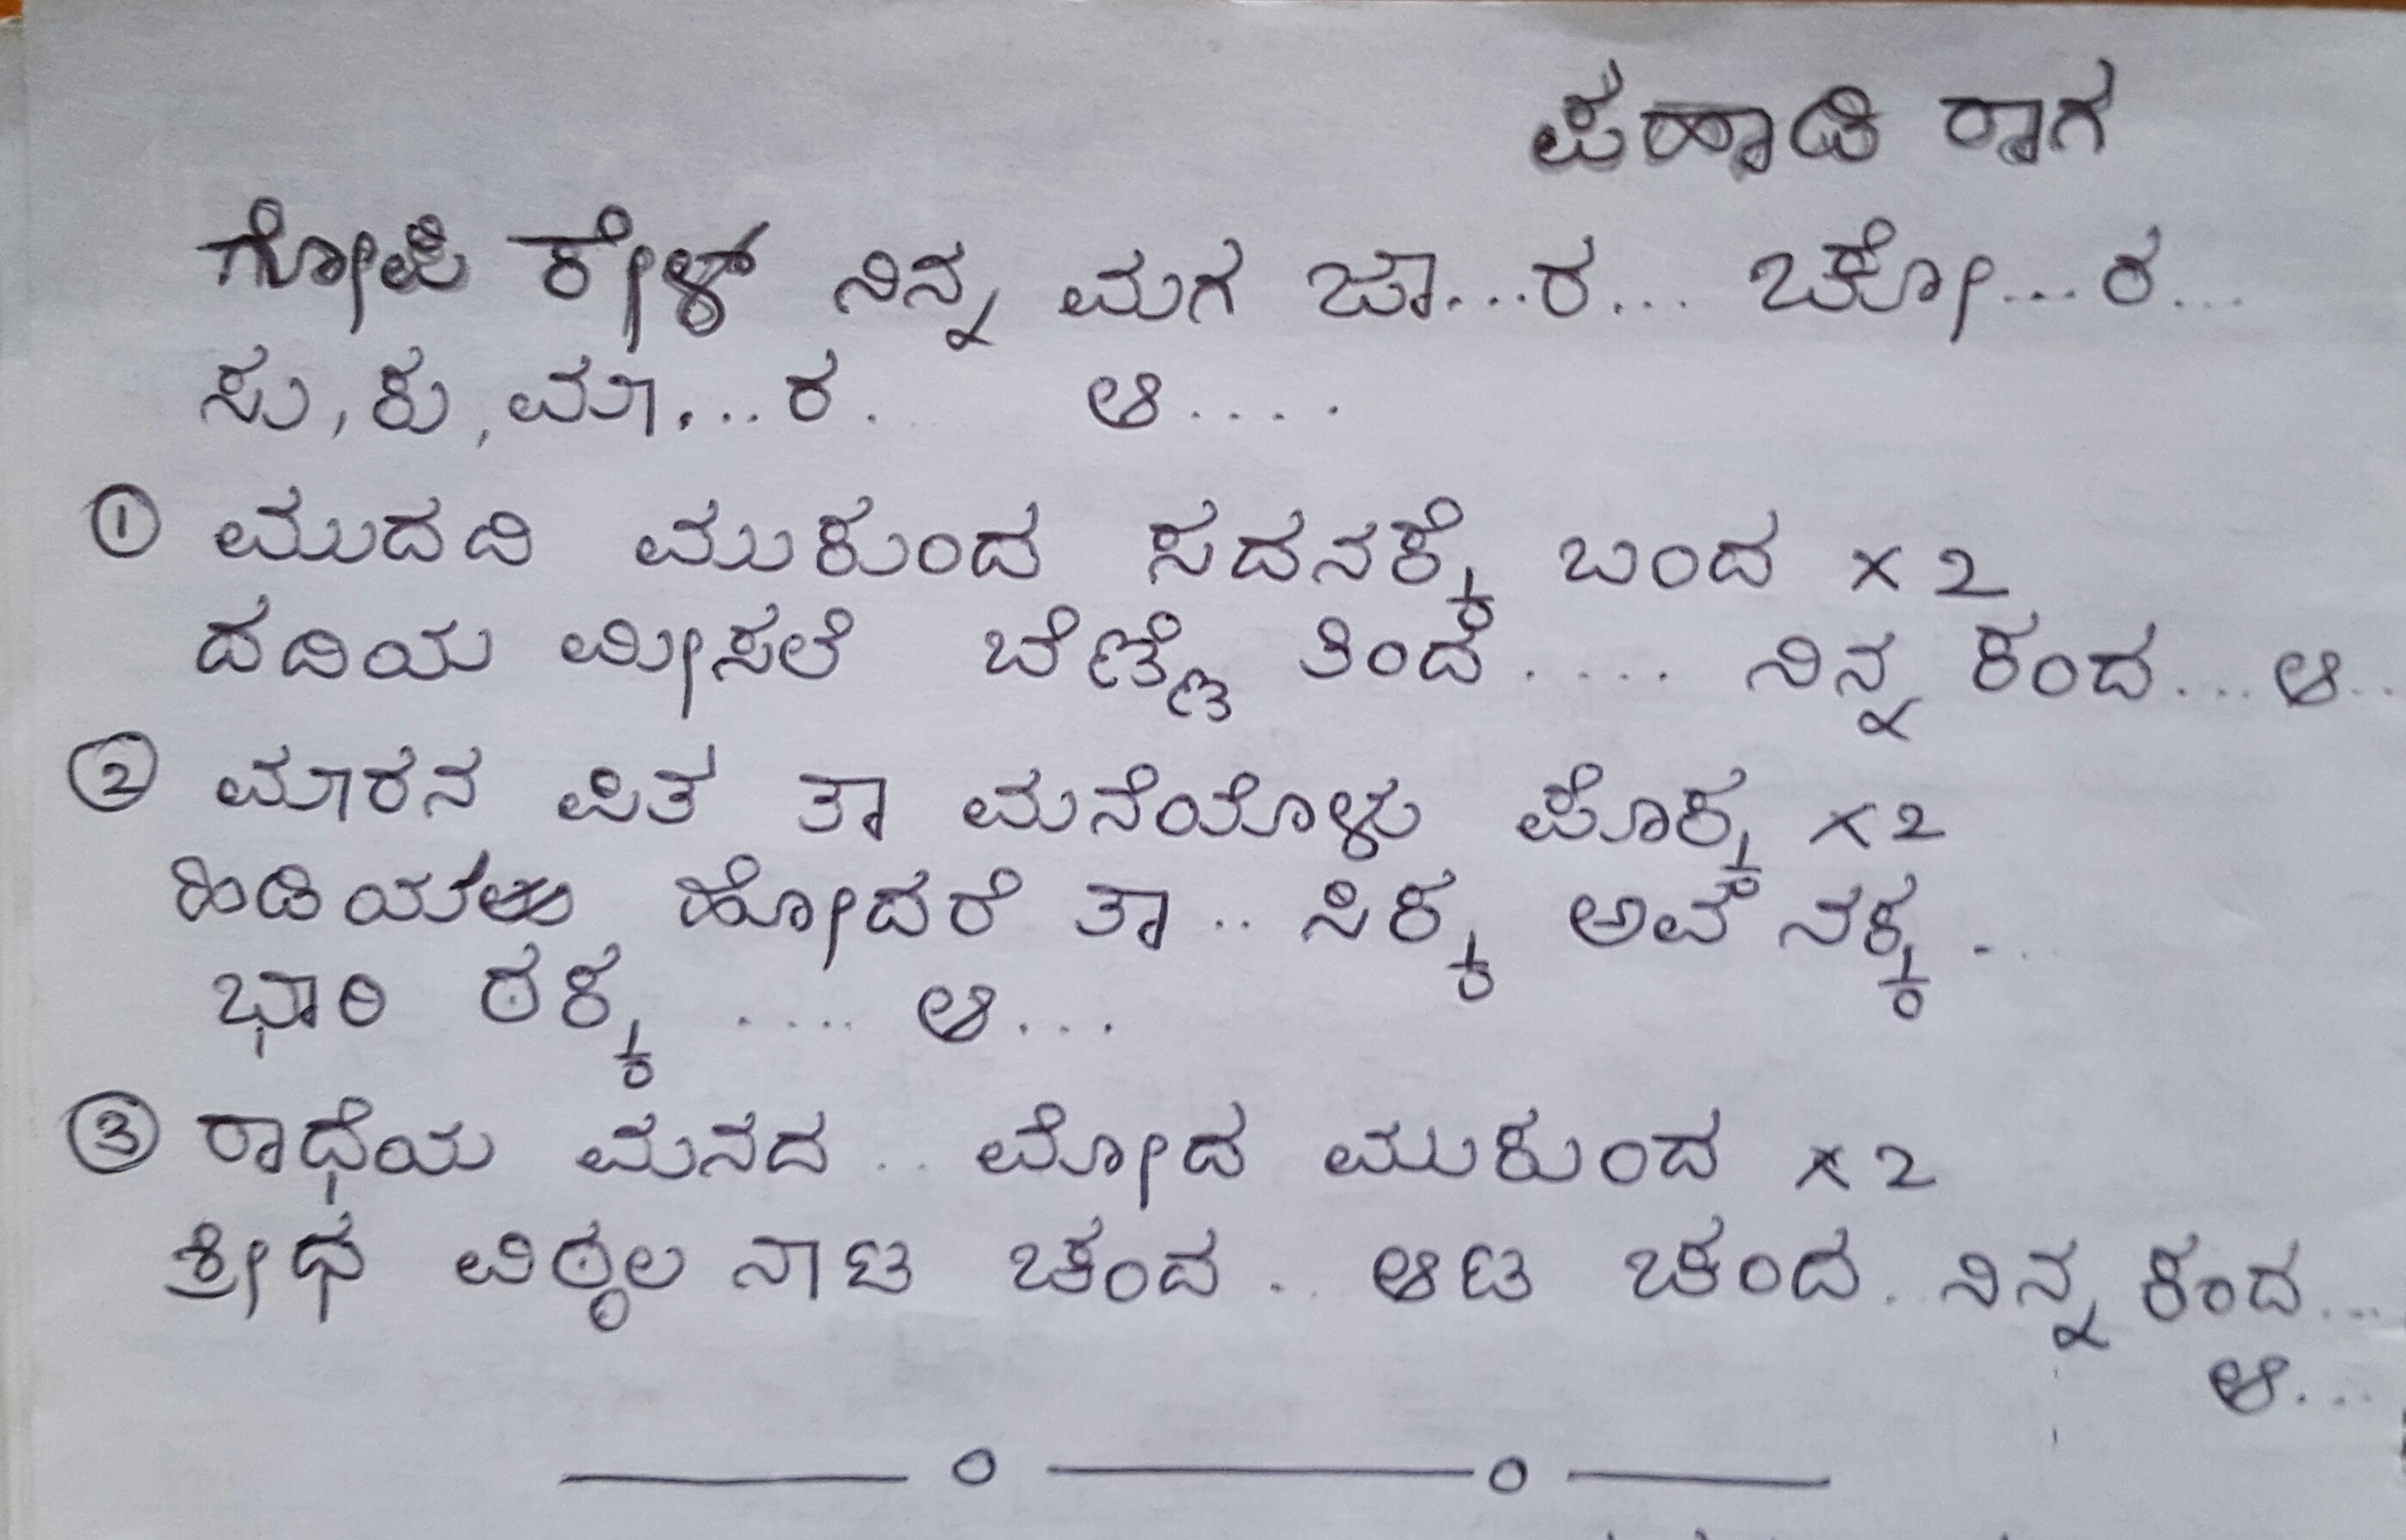 ಪಹಾಡಿ ರಾಗ
ಗೋಪಿ ಕೇಳ್ ನಿನ್ನ ಮಗ ಜಾ...ರ... ಚೋ...ರ...
ಸು, ಕು, ಮಾ....ರ. ಆ....
① ಮುದದಿ ಮುಕುಂದ ಸದನಕ್ಕೆ ಬಂದ x 2
ದದಿಯ ಮೀಸಲೆ ಬೆಣ್ಣೆ ತಿಂದ ..... ನಿನ್ನ ಕಂದ... ಆ..
② ಮಾರನ ಪಿತ ತಾ ಮನೆಯೊಳು ಪೊಕ್ಕ x 2
ಹಿಡಿಯಲು ಹೋದರೆ ತಾ .. ಸಿಕ್ಕ ಅವ ನಕ್ಕ ...
ಭಾರಿ ಠಕ್ಕ .... ಆ...
③ ರಾಧೆಯ ಮನದ .. ಮೋದ ಮುಕುಂದ x 2
ಶ್ರೀಧ ವಿಠ್ಠಲ ನಾಟ ಚಂದ .. ಆಟ ಚಂದ. ನಿನ್ನ ಕಂದ...
ಆ...